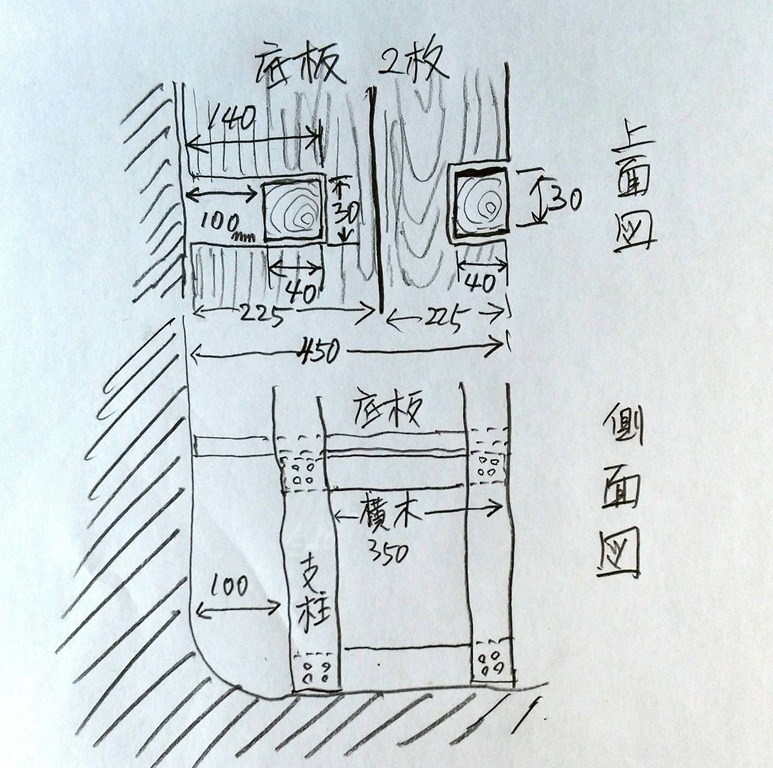 底板 2枚
140
100mm
30
30
40
40
225
225
450
上面図
底板
横木
350
100
支柱
側面図